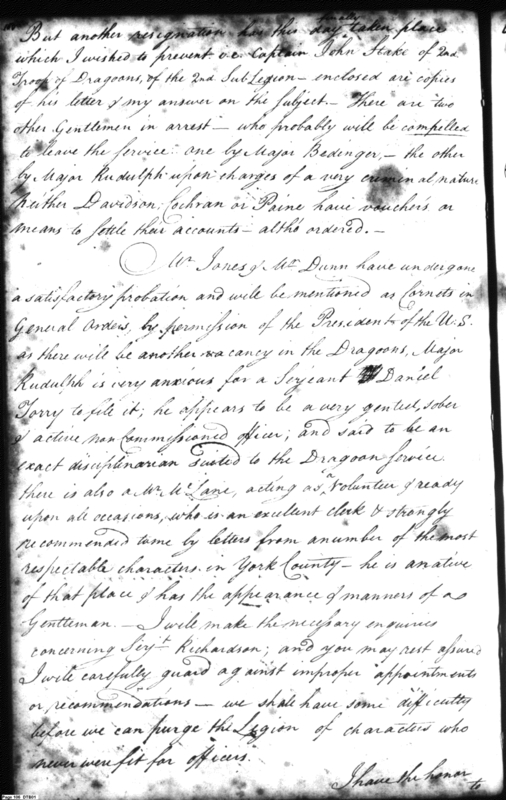 But another resignation has this day finally taken place
which I wished to prevent i.e. Captain John Stake of 2nd
Troop of Dragoons, of the 2nd Sub Legion — enclosed are copies
of his letter & my answer on the subject — There are two
other Gentlemen in arrest — who probably will be compelled
to leave the service one by Major Bedinger, — the other
by Major Rudulph upon charges of a very criminal nature
neither Davidson, Cochran or Paine have vouchers or
means to settle their accounts — altho ordered. —
Mr. Jones & Mr. Dunn have undergone
a satisfactory probation and will be mentioned as Cornets in
General Orders, by permission of the President of the U.S.
as there will be another vacancy in the Dragoons, Major
Rudulph is very anxious for a Serjeant Daniel
Torry to file it; he appears to be a very genteel, sober
& active, non Commissioned officer; and said to be an
exact disciplinarian suited to the Dragoon service
there is also a Mr. McLane, acting as a Volunteer & ready
upon all occasions, who is an excellent clerk & strongly
recommended to me by letters from a number of the most
respectable characters in York County — he is a native
of that place & has the appearance & manners of a
Gentleman. — I will make the necessary enquiries
concerning Serjt. Richardson; and you may rest assured
I will carefully guard against improper appointments
or recommendations — we shall have some difficulty
before we can purge the Legion of characters who
never were fit for officers.
I have the honor
to
Page 106